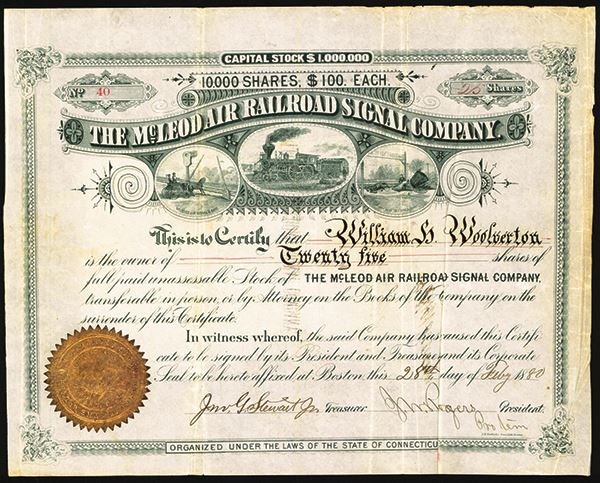 CAPITAL STOCK $1.000.000
10000 SHARES, $100. EACH.
No 40
25 Shares
THE McLEOD AIR RAILROAD SIGNAL COMPANY.
This is to Certify that William H. Woolverton
is the owner of Twenty five shares of
full paid unassessable Stock of THE McLEOD AIR RAILROAD SIGNAL COMPANY,
transferable in person, or by Attorney on the Books of the Company on the
surrender of this Certificate.
In witness whereof, the said Company has caused this Certifi
cate to be signed by its President and Treasurer and its Corporate
Seal to be hereto affixed at Boston, this 28th day of Feby 1880
Jno. G. Stewart Jr. Treasurer
Rogers President.
Pro tem
ORGANIZED UNDER THE LAWS OF THE STATE OF CONNECTICUT